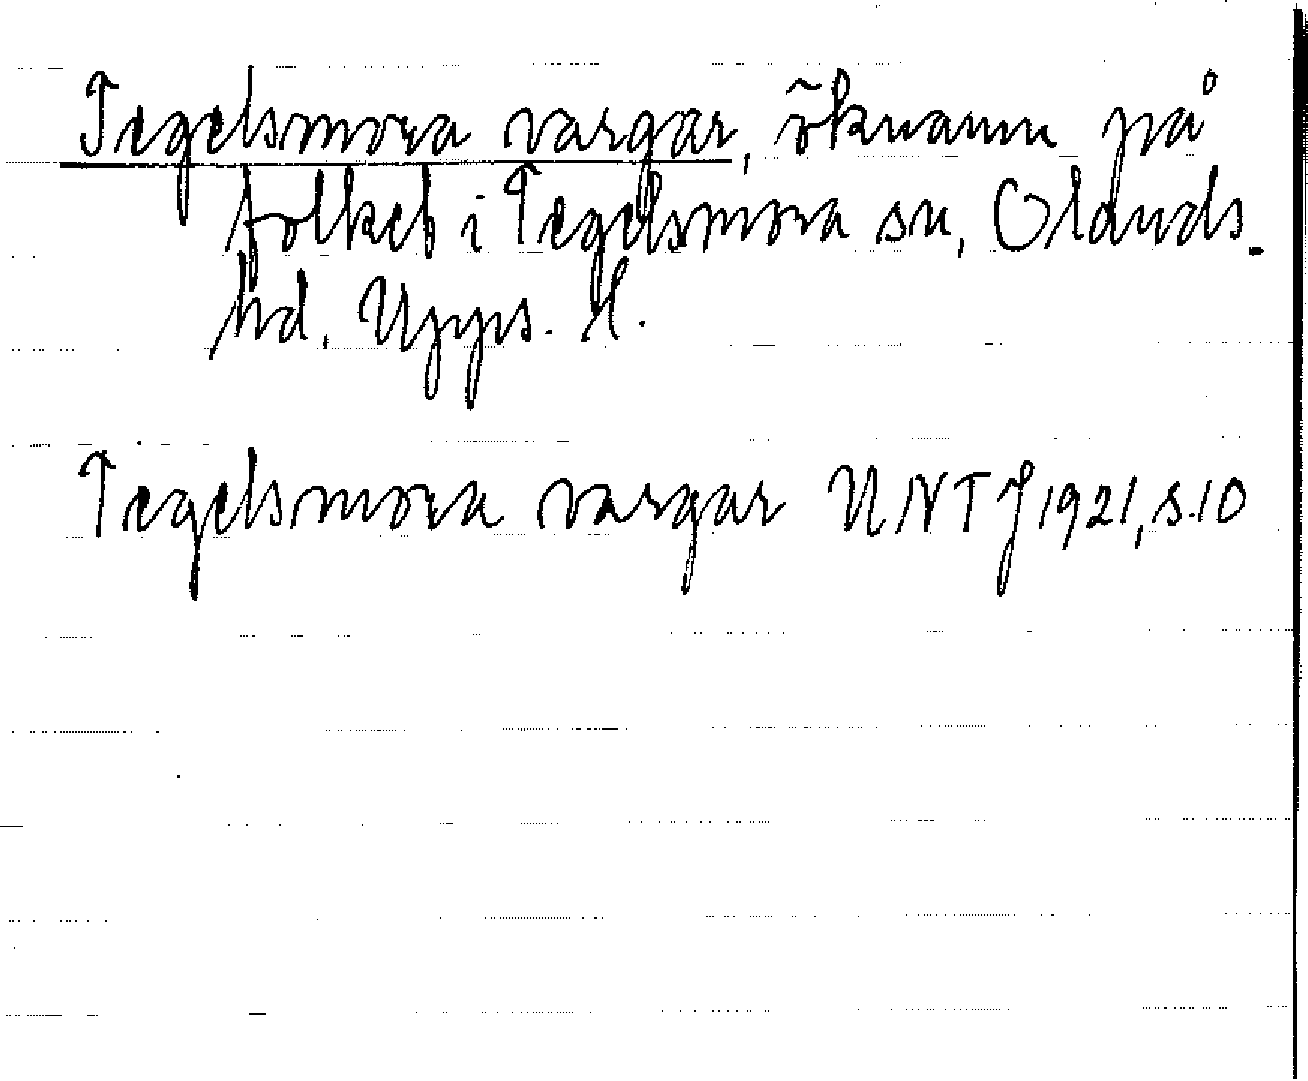 Tegelsmora vargar, öknamn på
folket i Tegelsmora sn, Olands
hd. Upps. l.
Tegelsmora vargar UNTJ 1921, s.10